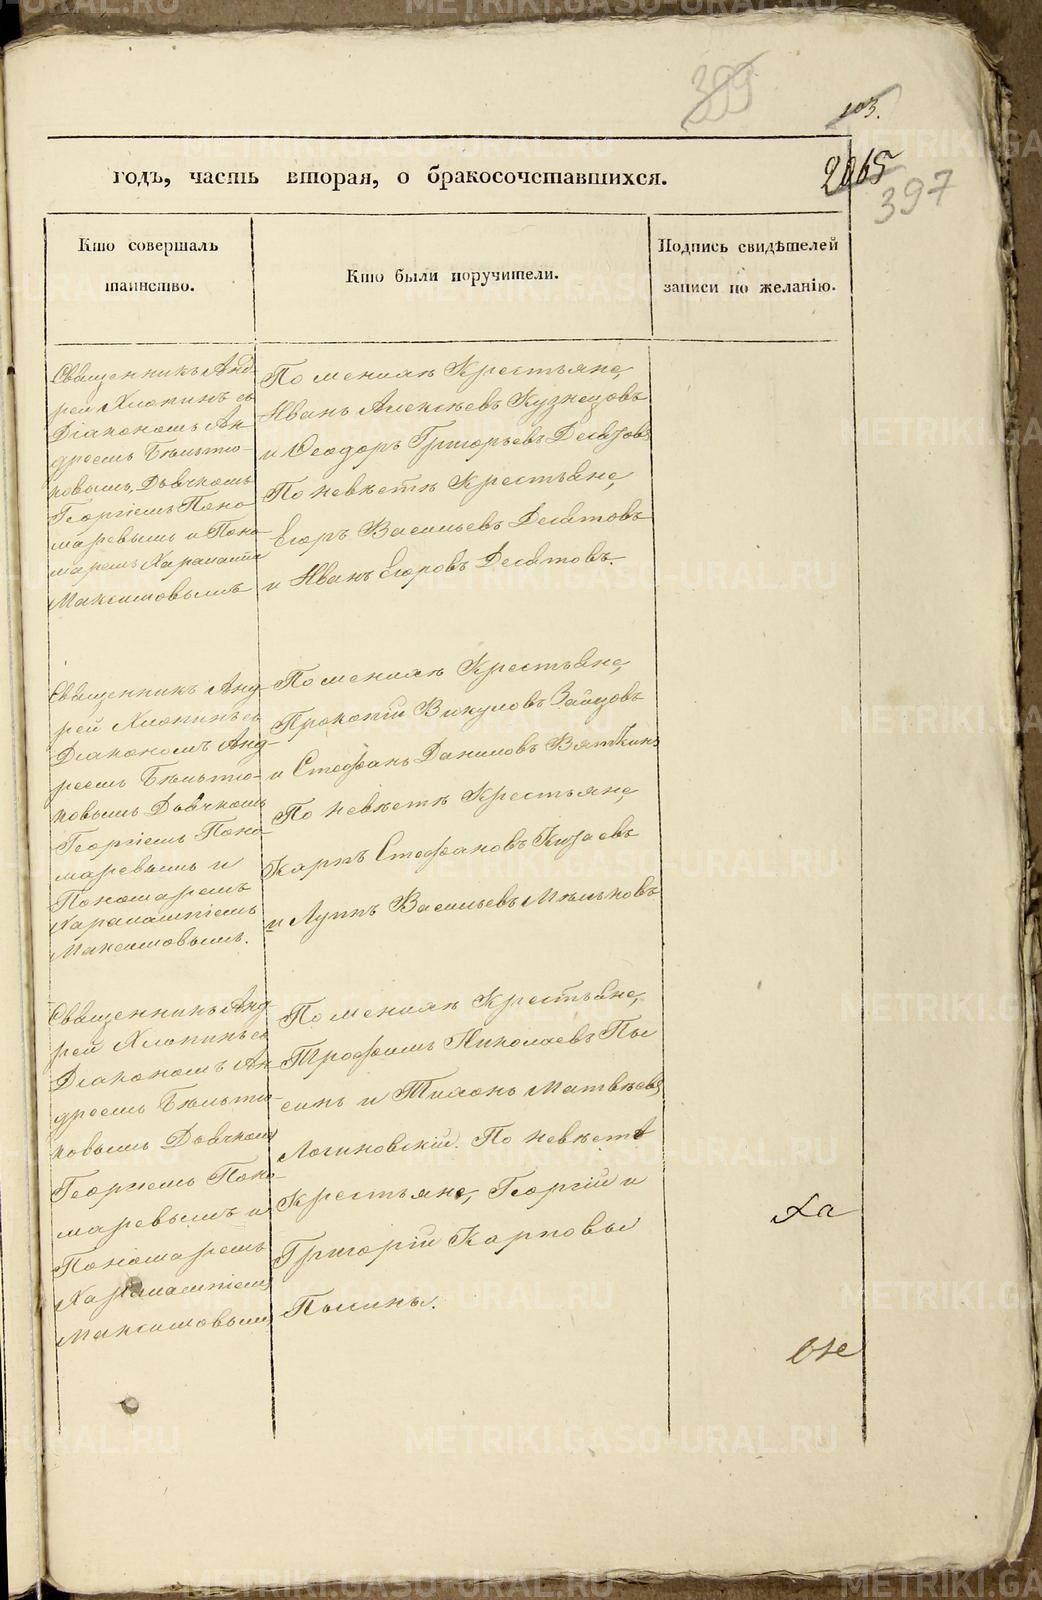 399
103.
2065
397
годъ, часть вторая, о бракосочетавшихся.
Кто совершалъ
таинство.
Кто были поручители.
Подпись свидѣтелей
записи по желанію.
Священникъ Анд
рей Хлопинъ съ
Діакономъ Ан
дреемъ Бѣльтю-
ковымъ, Дьячкомъ
Георгіемъ Поно
маревымъ и Поно
маремъ Харлампі
Максимовымъ
По женихѣ Крестьяне,
Иванъ Алексѣевъ Кузнецовъ
и Ѳеодоръ Григорьевъ Десятовъ
По невѣстѣ Крестьяне,
Егоръ Васильевъ Десятовъ
и Иванъ Егоровъ Десятовъ.
Священникъ Анд-
рей Хлопинъ съ
Діакономъ Анд-
реемъ Бѣльтю-
ковымъ Дьячкомъ
Георгіемъ Поно
маревымъ и
Пономаремъ
Харлампіемъ
Максимовымъ.
По женихѣ Крестьяне,
Прокопій Викуловъ Зайцовъ
и Стефанъ Даниловъ Вяткинъ
По невѣстѣ Крестьяне,
Карпъ Стефановъ
и Луппъ Васильевъ Мѣльковъ
Священникъ Анд-
рей Хлопинъ съ
Діакономъ Ан
дреемъ Бѣльтю-
ковымъ Дьячкомъ
Георгіемъ Поно-
маревымъ и
Пономаремъ
Харлампіемъ
Максимовымъ
По женихѣ Крестьяне,
Трофимъ Николаевъ Пы
синъ и Тихонъ Матвѣевъ
Логиновскій. По невѣстѣ
Крестьяне, Георгій и
Григорій Карповы
Пысины.
Ха
METRIKI.GASO-URAL.RU